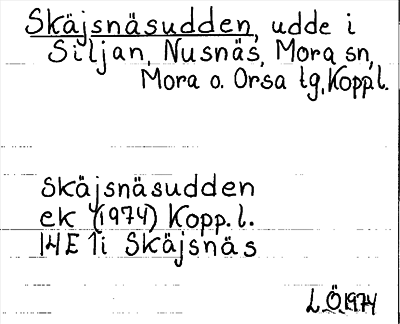 Skäjsnäsudden, udde i
Siljan, Nusnäs, Mora sn,
Mora o. Orsa tg, Koppl.
Skäjsnäsudden
ek (1974) Kopp.l.
14E 1i Skäjsnäs
L.Ö.1974